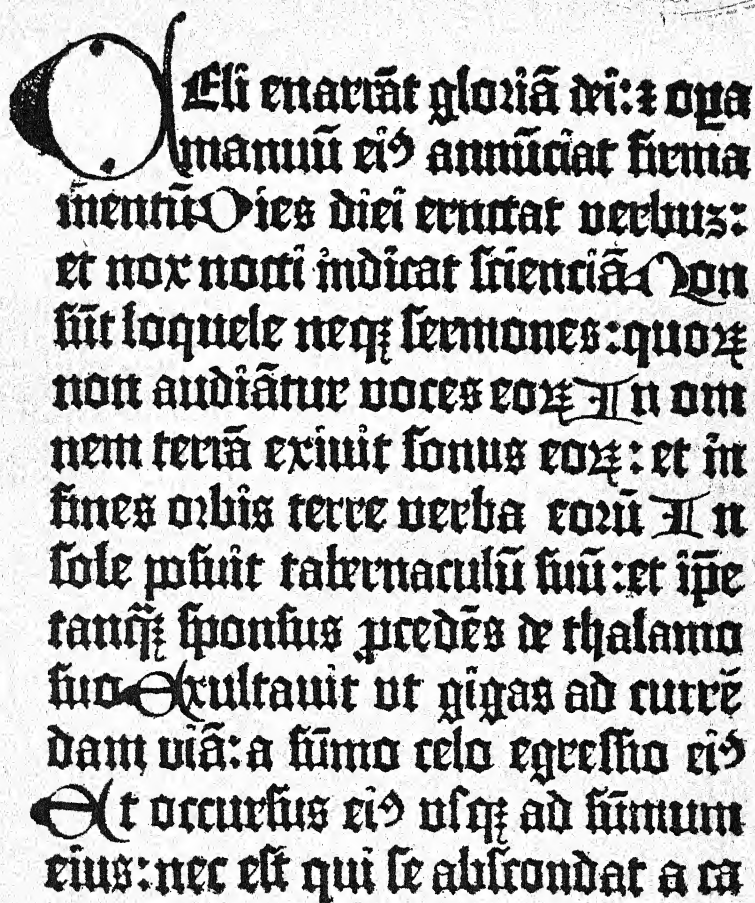 CEli enarrāt gloriā dei: ⁊ oꝑa
manuū eiꝰ annūciat firma
mentū Dies diei eructat verbuz:
et nox nocti indicat scienciā Non
sūt loquele neqꝫ sermones: quoꝝ
non audiātur voces eoꝝ In om
nem terrā exiuit sonus eoꝝ: et in
fines orbis terre verba eorū In
sole posuit tabernaculū suū: et ip̄e
tanq̄ꝫ sponsus ꝓcedēs de thalamo
suo Exultauit vt gigas ad currē
dam viā: a sūmo celo egressio eiꝰ
Et occursus eiꝰ vsqꝫ ad sūmum
eius: nec est qui se abscondat a ca